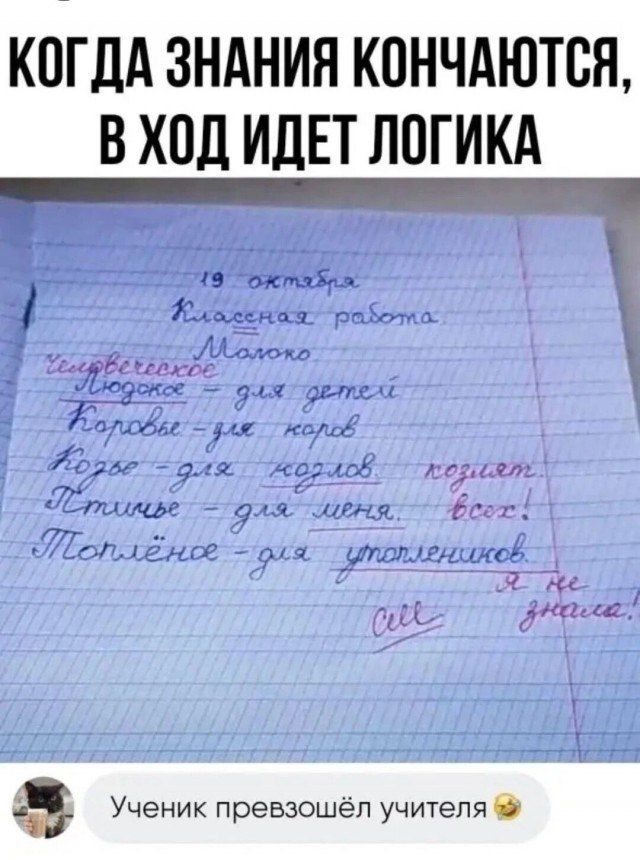 КОГДА ЗНАНИЯ КОНЧАЮТСЯ,
В ХОД ИДЕТ ЛОГИКА
19 октября
Классная работа
Молоко
Человеческое
Людское – для детей
Коровье – для коров
Козье – для козлов козлят.
Птичье – для меня. всех!
Топлёное – для утоплеников.
я не
знала!
см
Ученик превзошёл учителя🤣